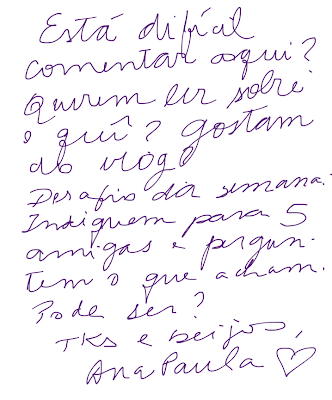 Está difícil
comentar aqui?
Querem ler sobre
o quê? Gostam
do vlog?
Desafio da semana.
Indiquem para 5
amigas e pergun-
tem o que acham.
Pode ser?
TKS e beijos,
Ana Paula ♡